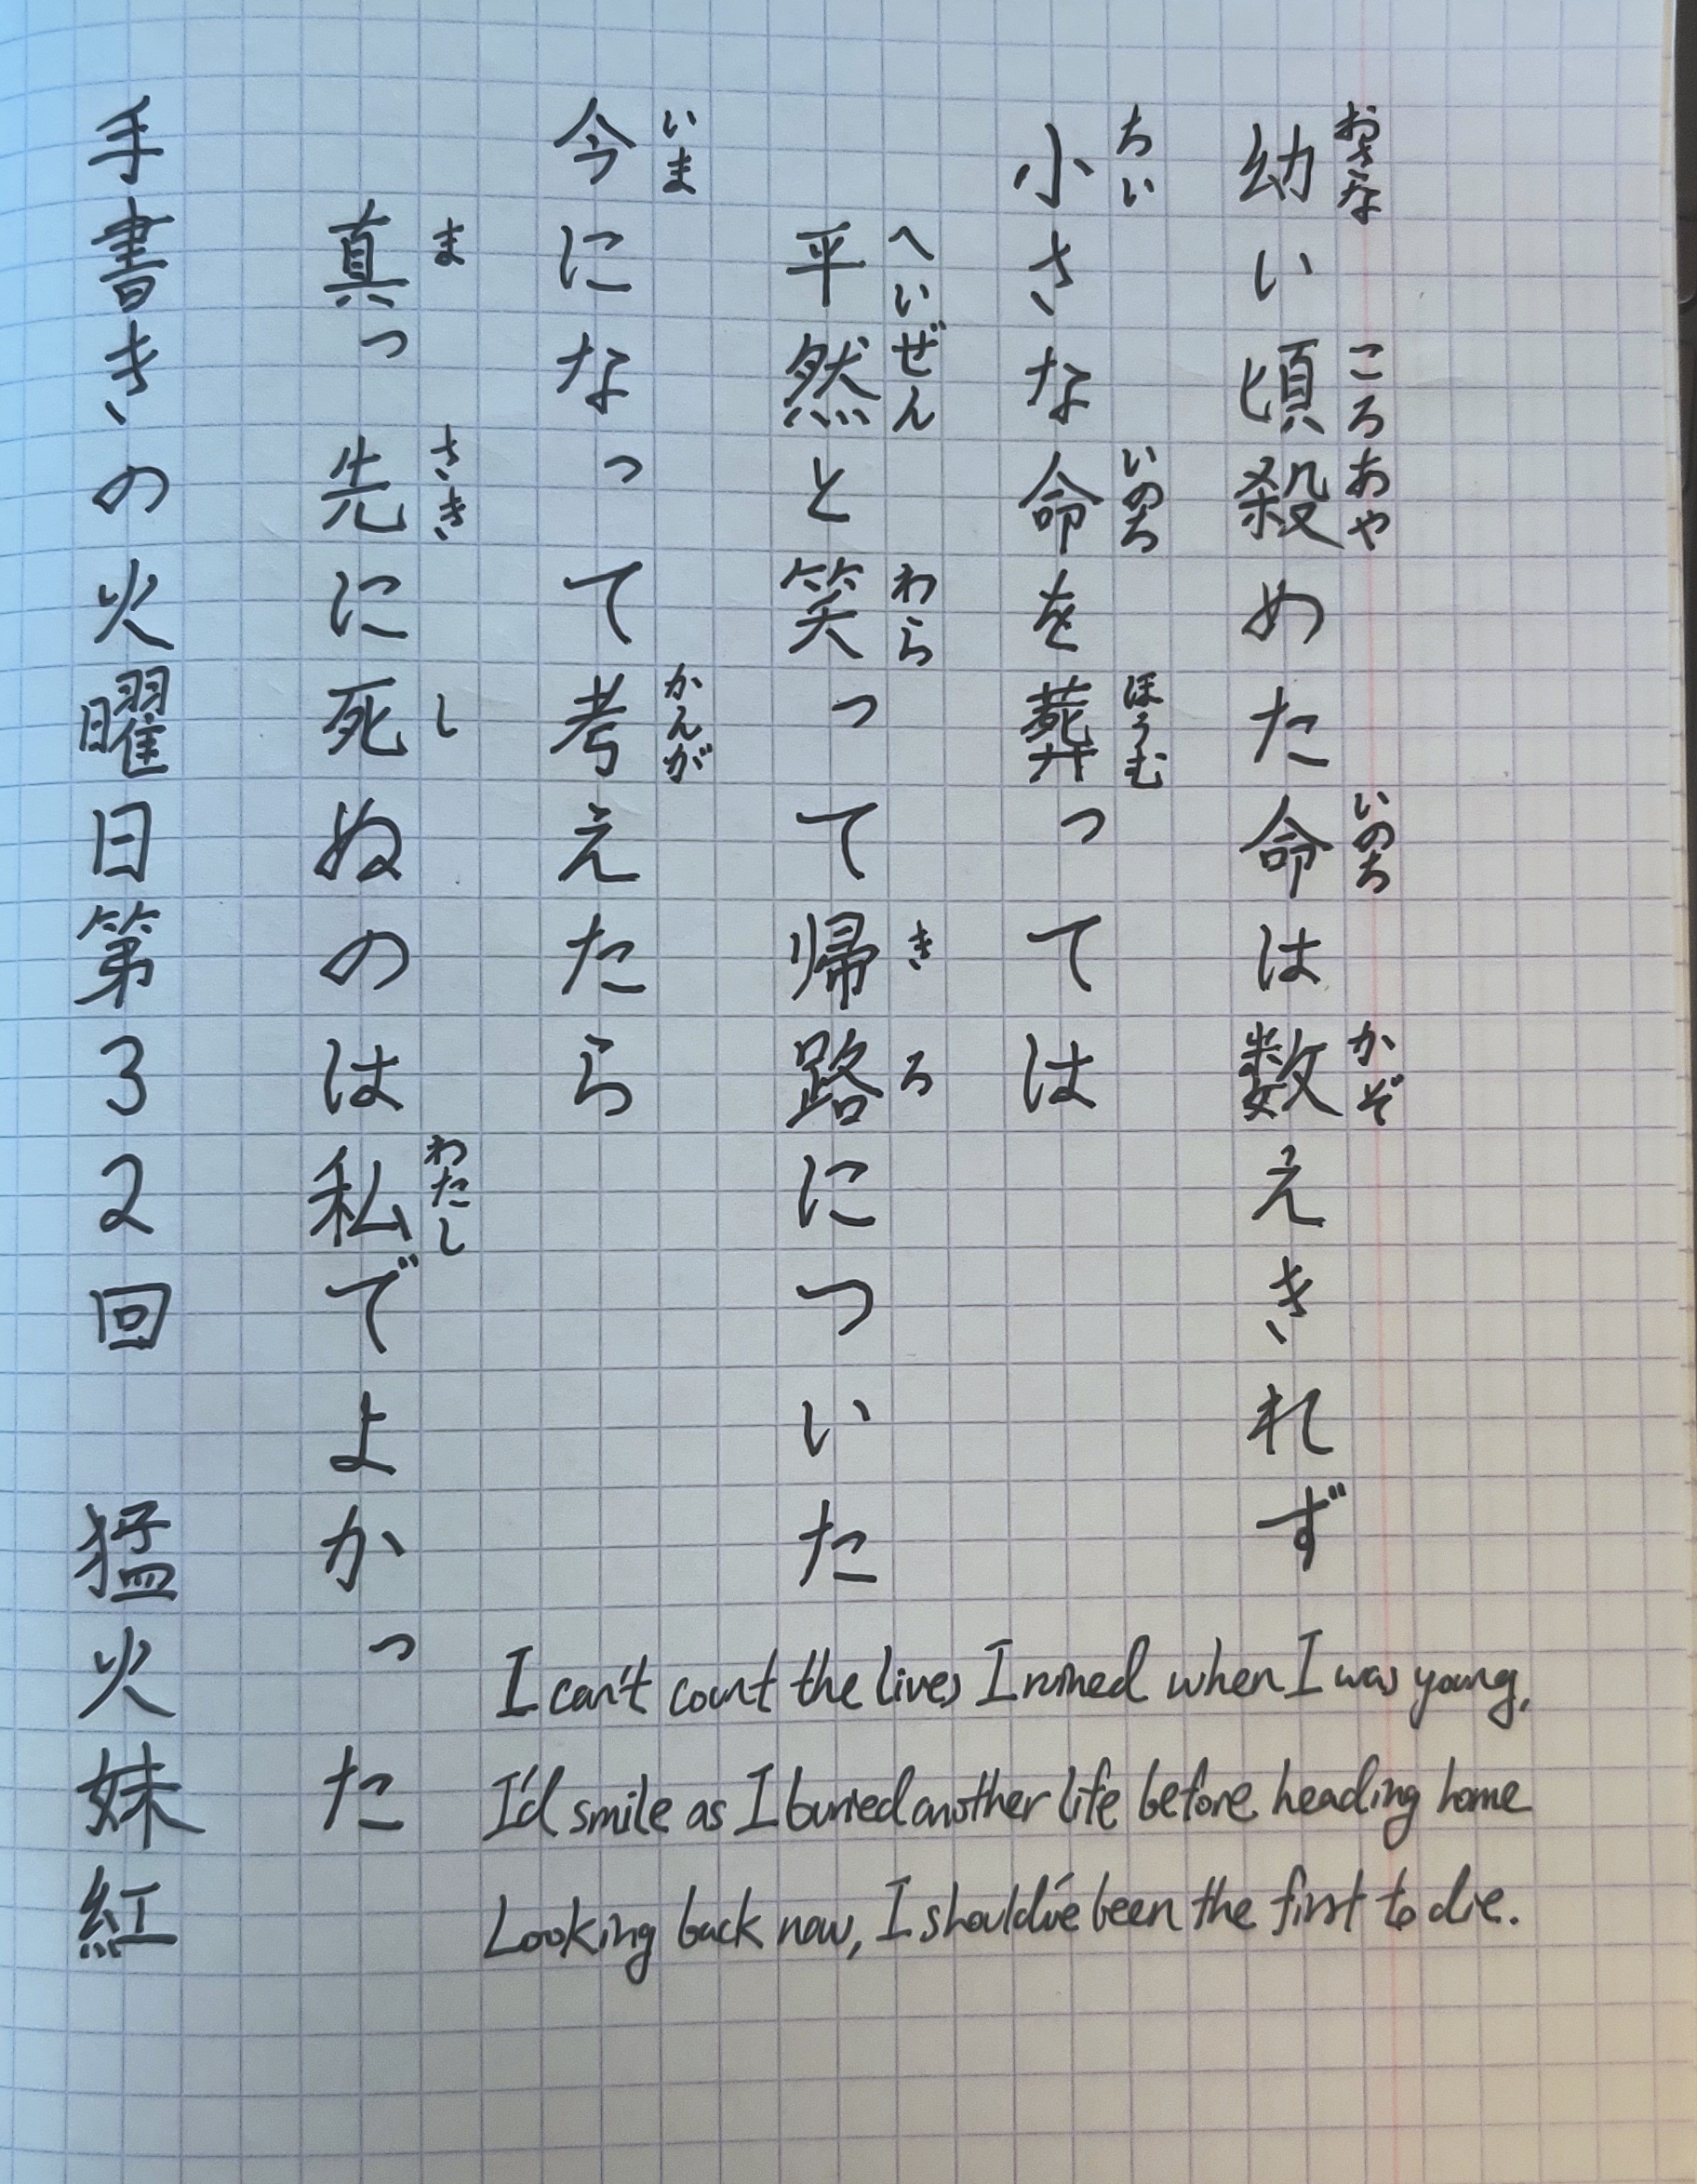 幼い頃殺めた命は数えきれず
おさな ころ あや いのち かぞ
小さな命を葬っては
ちい いのち ほうむ
平然と笑って帰路についた
へいぜん わら きろ
今になって考えたら
いま かんが
真っ先に死ぬのは私でよかった
ま さき し わたし
手書きの火曜日第32回 猛火妹紅
I can't count the lives I ruined when I was young,
I'd smile as I buried another life before heading home
Looking back now, I should've been the first to die.